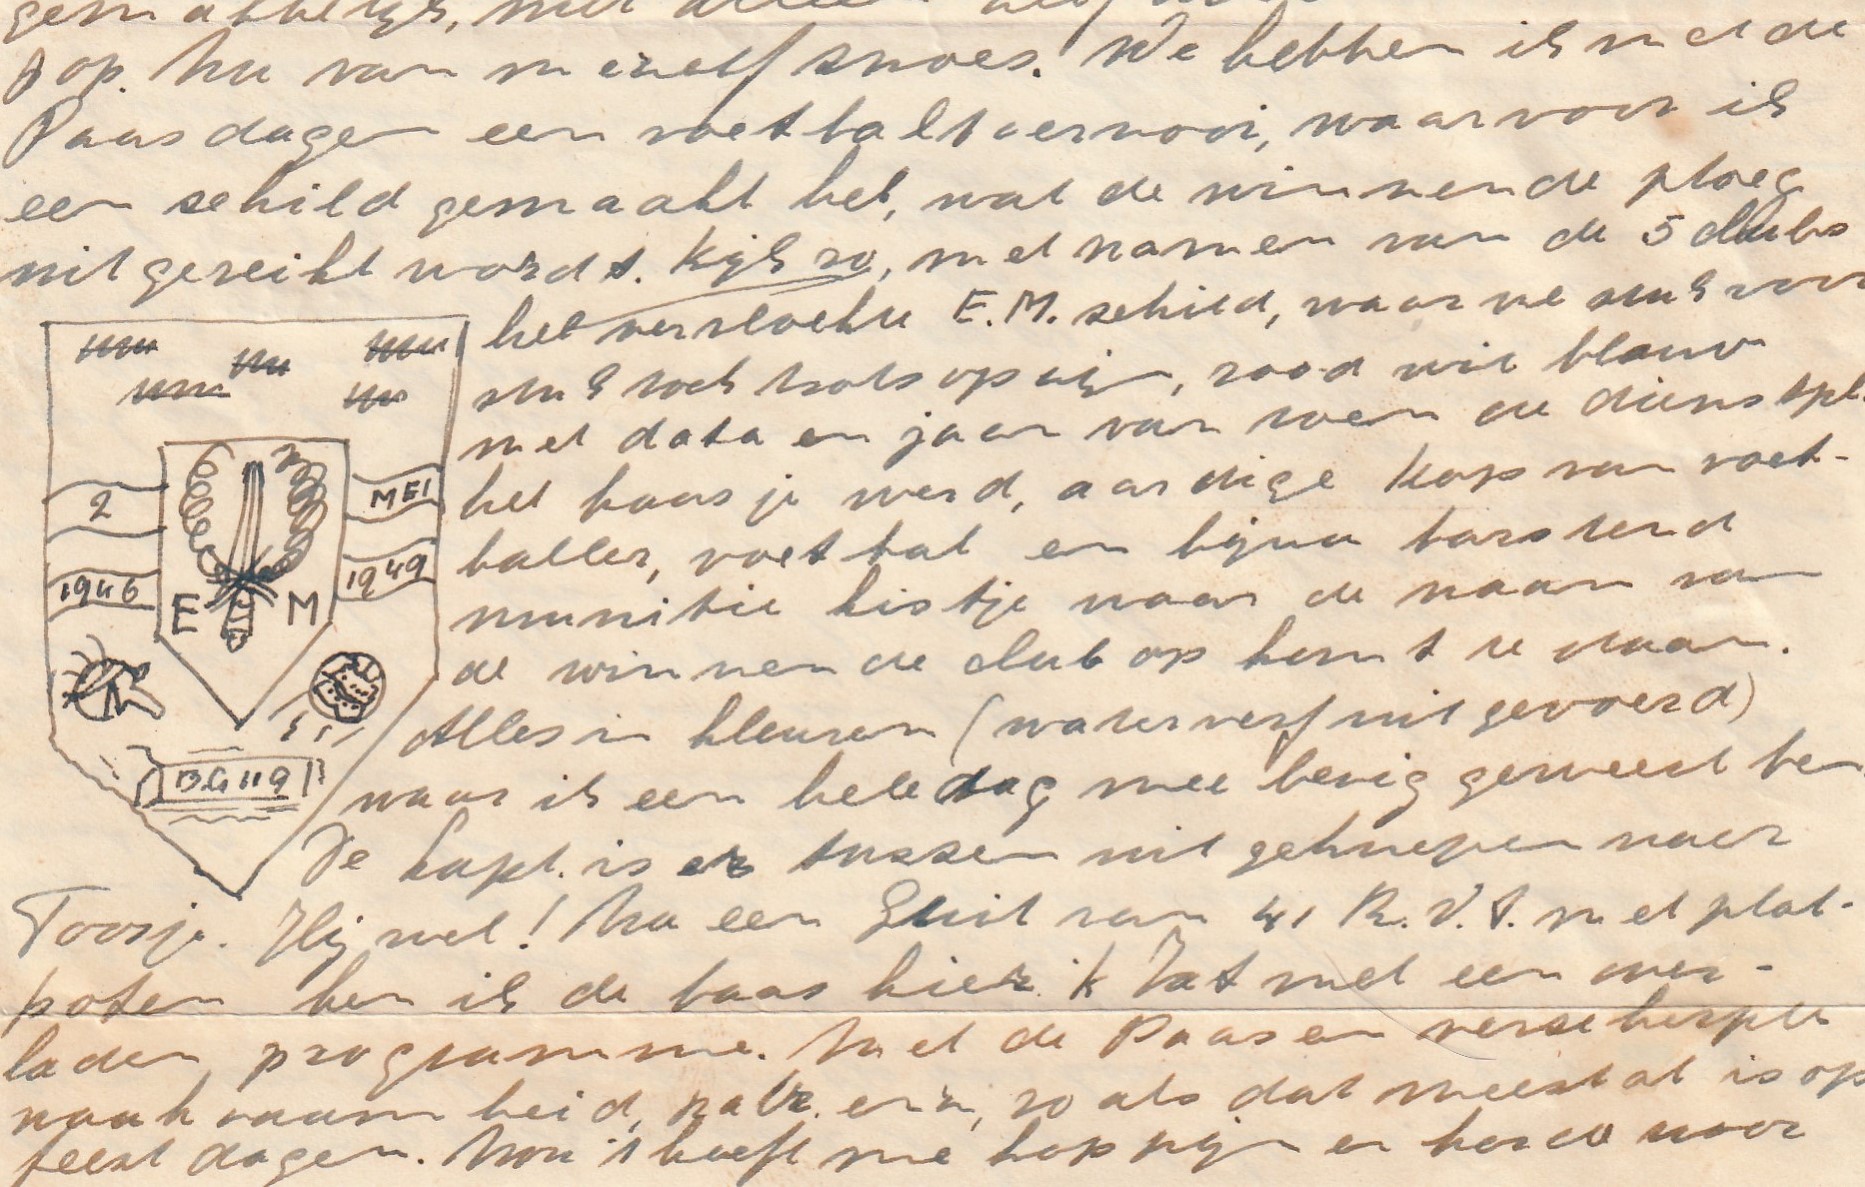 op. Nu van mezelf snoes. We hebben ik met de
Paasdagen een voetbaltoernooi, waarvoor ik
een schild gemaakt heb, wat de winnende ploeg
uitgereikt wordt. Kijk zo, met namen van de 5 clubs
het vervloekte E.M. schild, waar we stuk voor
stuk toch trots op zijn, rood wit blauw
met data en jaar van toen de dienstpl.
het haasje werd, aardige kop van voet-
baller, voetbal en bijna barstend
munitie kistje waar de naam van
de winnende club op komt te staan.
2 MEI
1946 1949
E M
BG 119
Alles in kleuren (waterverf uitgevoerd)
waar ik een hele dag mee bezig geweest ben
De kapt. is er tussen uit geknepen naar
Toosje. Hij wel! Na een Luit van 41 R.V.A. met plat-
poten ben ik de baas hier. ik zat met een over-
laden programma. Met de Paasen verscherpte
waakzaamheid, patr. enz, zoals dat meestal is op
feestdagen. Nou 't heeft me koppijn en harde voor